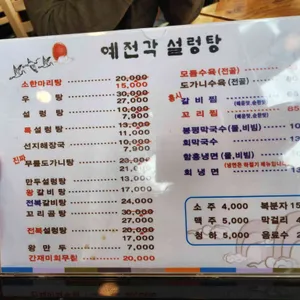 예전각 설렁탕
소한마리탕 20,000 15,000
우족탕 30,000 27,000
설렁탕 10,000 7,900
특설렁탕 13,000
선지해장국
진짜 무릎도가니탕
만두설렁탕 13,000
왕갈비탕 17,000
전복갈비탕 24,000
꼬리곰탕 30,000 27,000
전복설렁탕 17,000
왕만두 7,000
간재미회무침 20,000
모듬수육 (전골)
도가니수육 (전골)
출시 갈비찜 (매운맛,순한맛)
꼬리찜 (매운맛,순한맛)
봉평막국수(물,비빔)
회막국수
함흥냉면(물,비빔)
회냉면
소주 4,000 복분자
맥주 5,000 막걸리
청하 5,000 음료수